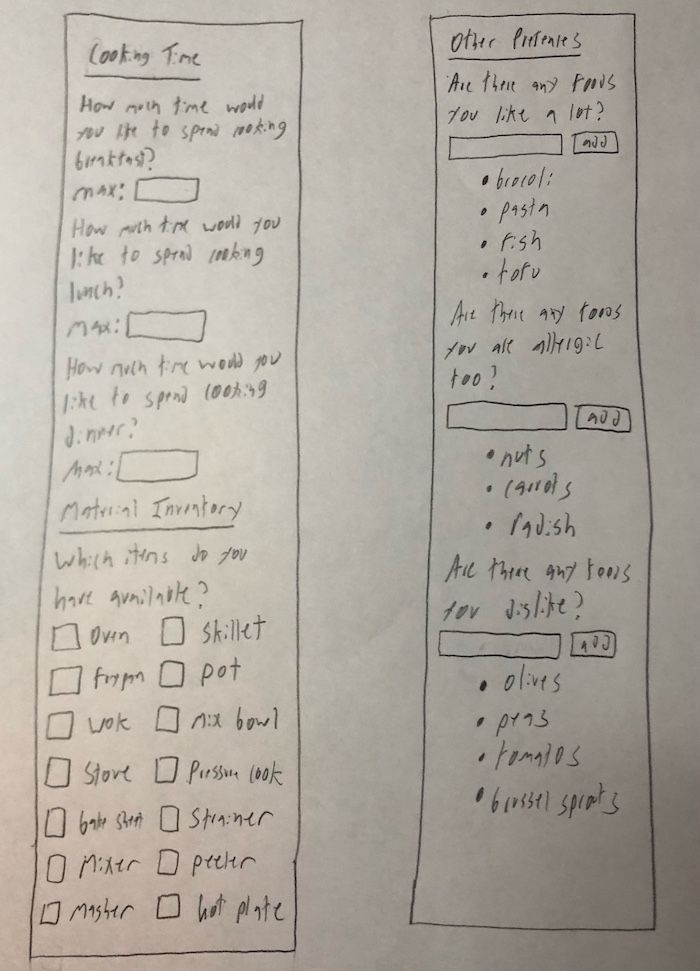 Cooking Time
How much time would
you like to spend cooking
breakfast?
max:
How much time would you
like to spend cooking
lunch?
max:
How much time would you
like to spend cooking
dinner?
max:
Material Inventory
Which items do you
have available?
Oven skillet
frypan pot
wok mix bowl
Stove Pressure cook
bake sheet Strainer
Mixer peeler
Masher hot plate
Other
Are there any foods
you like a lot?
add
• brocoli
• pasta
• fish
• tofu
Are there any foods
you are allergic
too?
add
• nuts
• carrots
• radish
Are there any foods
you dislike?
add
• olives
• peas
• tomatos
• brussel sprouts